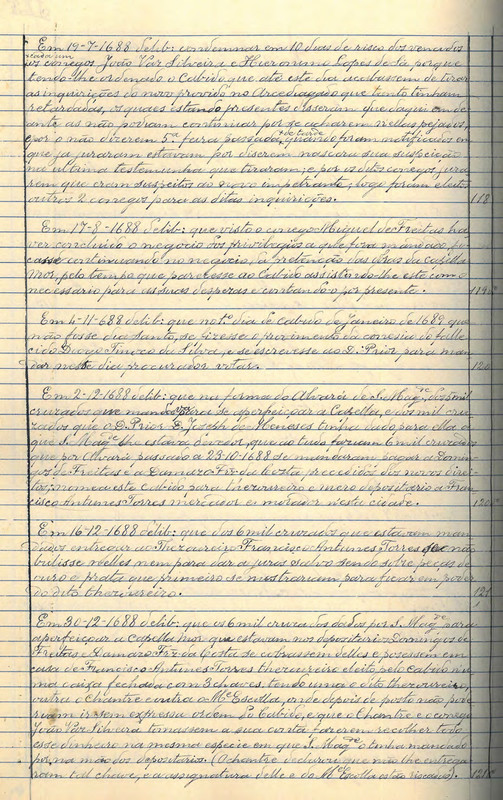 Em 19-7-1688 delib: condemnar em 10 dias de risco dos vencidos
cada um
os conegos João Vaz Silveira e Hieronimo Lopes de Sá, porque
tendo-lhe ordenado o Cabido que até este dia acabassem de tirar
as inquirições do novo provido no Arcediagado que tanto tinham
retardadas, os quaes estando presentes disseram que daqui em de-
ante as não podiam continuar por se acharem nellas pejados,
e por o não dizerem 5ª feira passada, de tarde quando foram notificados em
que ja juraram estavam por dizerem nascera sua suspeição
na ultima testemunha que tiraram; e por os ditos conegos, jura-
rem que eram suspeitos ao novo impetrante, logo foram eleitos
outros 2 conegos para as ditas inquirições. 118
Em 17-8-1688 delib: que visto o conego Miguel de Freitas ha-
ver concluido o negocio dos privilegios a que fôra mandado, fi-
casse continuando no negocio, da retenção das obras da Capella
Mor, pelo tempo que parecesse ao Cabido assistindo-lhe este com o
necessario para as suas despezas e contando-o por presente. 119
Em 4-11-688 delib: que no 1º dia de cabido de Janeiro de 1689 que
não fosse dia Santo, se fizesse o provimento da conesia do falle-
cido Diogo Tinoco da Silva, e se escrevesse ao D. Prior para man-
dar neste dia procurador votar. 120
Em 2-12-1688 delib: que na forma do Alvará de S. Magde dos 5 mil
cruzados que mandou para se aperfeiçoar a Capella, e dos mil cru-
zados que o D. Prior D. Joseph de Menezes tinha dado para ella, o
que S. Magde lhe estava devedor, que ao tudo faziam 6 mil cruzados
que por Alvará passado a 23-10-1688 se mandaram pagar a Domin-
gos de Freitas e a Damazo Frz da Costa precedidos dos novos direi-
tos; nomea este cabido para thezoureiro e mero depositario a Fran-
cisco Antunes Torres mercador e morador n'esta cidade. 120
Em 16-12-1688 delib: que dos 6 mil cruzados que estavam man-
dados entregar ao Thezoureiro Francisco Antunes Torres se não
bulisse nelles nem para dar a juros salvo sendo sobre peças de
ouro e prata que primeiro se mostrariam para ficar em poder
do dito thezoureiro. 121
Em 30-12-1688 delib: que os 6 mil cruzados dados por S. Magde para
aperfeiçoar a Capella Mor que estavam nos depositarios Domingos de
Freitas e Damazo Frz da Costa se cobrassem delles e pozessem em
casa de Francisco Antunes Torres thezoureiro eleito pelo Cabido nu-
ma caixa fechada com 3 chaves, tendo uma o dito thezoureiro,
outra o Chantre e outra o Me Escolla, onde depois de posto não pode-
riam ir sem expressa ordem do Cabido, e que o Chantre e o conego
João Vaz Silveira tomassem a sua conta fazerem recolher todo
esse dinheiro na mesma especie em que S. Magde o tinha mandado
pôr, na mão dos depositarios. (O chantre declarou que não lhe entrega-
ram tal chave, e a assignatura delle e do Me Escolla estão riscadas). 121